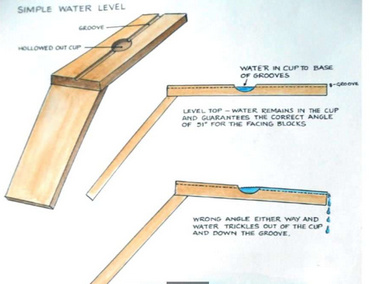 SIMPLE WATER LEVEL
GROOVE
HOLLOWED OUT CUP
WATER IN CUP TO BASE
OF GROOVES
GROOVE
LEVEL TOP – WATER REMAINS IN THE CUP
AND GUARANTEES THE CORRECT ANGLE
OF 51° FOR THE FACING BLOCKS
WRONG ANGLE EITHER WAY AND
WATER TRICKLES OUT OF THE CUP
AND DOWN THE GROOVE.